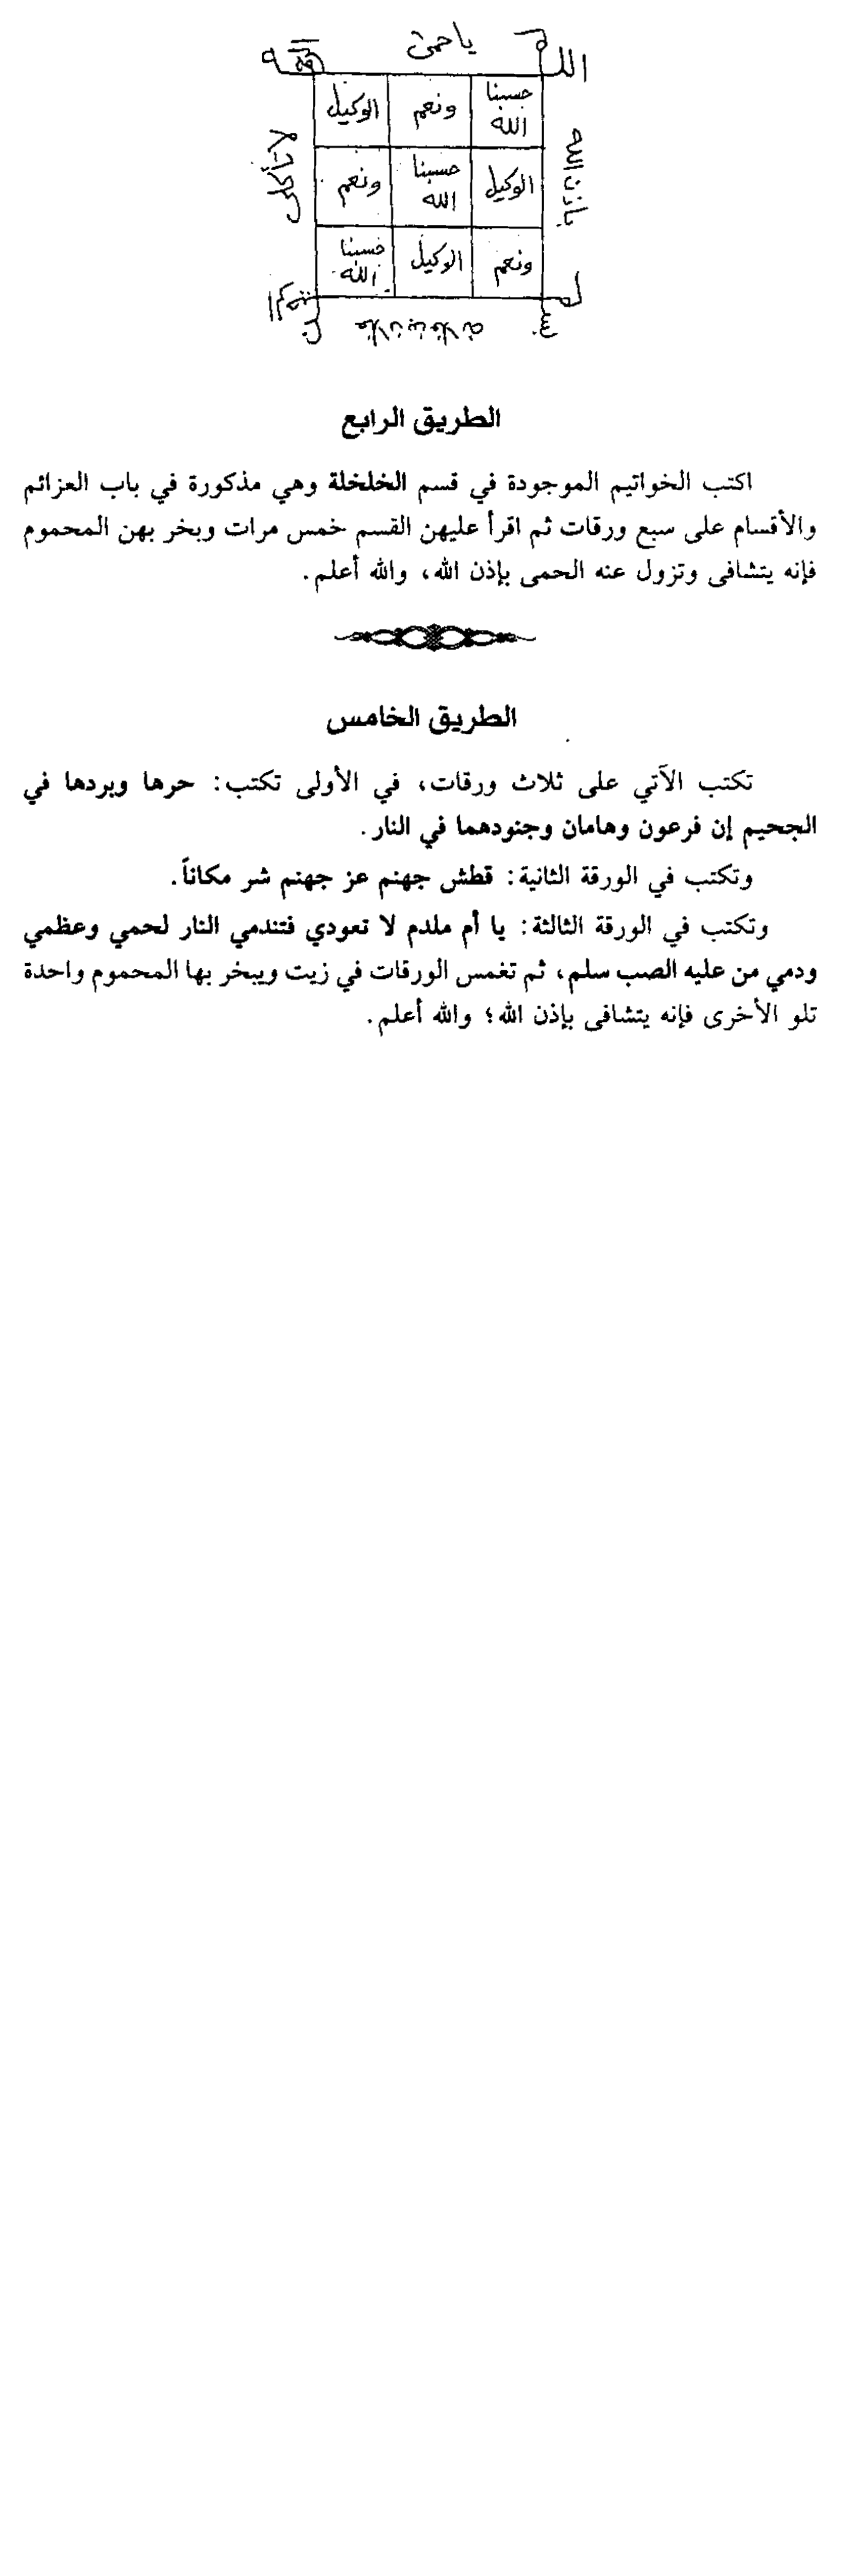 يا حمى
الل
حسبنا الله ونعم الوكيل
الوكيل حسبنا الله ونعم
ونعم الوكيل حسبنا الله
بإذن الله
لا تأكلي
الطريق الرابع
اكتب الخواتيم الموجودة في قسم الخلخلة وهي مذكورة في باب العزائم
والأقسام على سبع ورقات ثم اقرأ عليهن القسم خمس مرات وبخر بهن المحموم
فإنه يتشافى وتزول عنه الحمى بإذن الله، والله أعلم.
الطريق الخامس
تكتب الآتي على ثلاث ورقات، في الأولى تكتب: حرها وبردها في
الجحيم إن فرعون وهامان وجنودهما في النار.
وتكتب في الورقة الثانية: قطش جهنم عز جهنم شر مكاناً.
وتكتب في الورقة الثالثة: يا أم ملدم لا تعودي فتندمي النار لحمي وعظمي
ودمي من عليه الصب سلم، ثم تغمس الورقات في زيت ويبخر بها المحموم واحدة
تلو الأخرى فإنه يتشافى بإذن الله؛ والله أعلم.